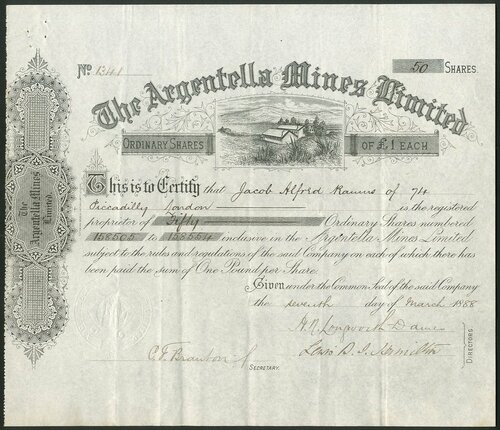 No. 1341
50 SHARES.
The Argentella Mines Limited
ORDINARY SHARES OF £1 EACH
The Argentella Mines Limited.
This is to Certify that Jacob Alford Ramus of 74
Piccadilly London is the registered
proprietor of Fifty Ordinary Shares numbered
158505 to 158554 inclusive in the Argentella Mines Limited
subject to the rules and regulations of the said Company on each of which there has
been paid the sum of One Pound per Share.
Given under the Common Seal of the said Company
the seventh day of March 1888
DIRECTORS
SECRETARY.